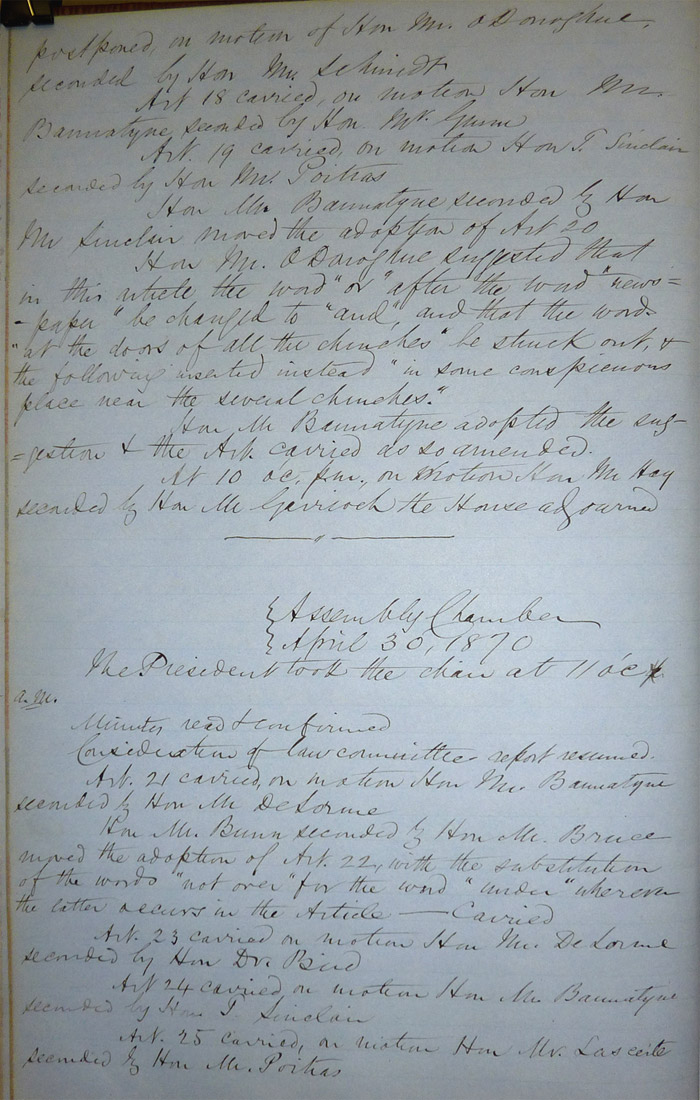 postponed, on motion of Hon Mr. O'Donoghue,
seconded by Hon Mr. Schmidt
Art 18 carried, on motion Hon Mr.
Bannatyne, seconded by Hon. Mr. Gunn
Art. 19 carried, on motion Hon T. Sinclair
seconded by Hon Mr. Poitras
Hon Mr. Bannatyne seconded by Hon
Mr Sinclair moved the adoption of Art 20
Hon Mr. O'Donoghue suggested that
in this article the word "or" after the word "news=
-paper" be changed to "and", and that the words
"at the doors of all the churches" be struck out, &
the following inserted instead "in some conspicuous
place near the several churches."
Hon Mr Bannatyne adopted the sug-
=gestion & the Art. carried as so amended.
At 10 oc. p.m., on motion Hon Mr Hay
seconded by Hon Mr Garrioch the House adjourned
Assembly Chamber
April 30, 1870
The President took the chair at 11 oc
a.m.
Minutes read & confirmed
Consideration of law committee report resumed.
Art. 21 carried, on motion Hon Mr. Bannatyne
seconded by Hon Mr DeLorme
Hon Mr. Bunn seconded by Hon Mr. Bruce
moved the adoption of Art. 22, with the substitution
of the words "not over" for the word "under" wherever
the latter occurs in the Article — Carried
Art. 23 carried on motion Hon Mr. DeLorme
seconded by Hon Dr. Bird
Art 24 carried on motion Hon Mr Bannatyne
seconded by Hon T Sinclair
Art. 25 carried, on motion Hon Mr. Lascerte
seconded by Hon Mr. Poitras